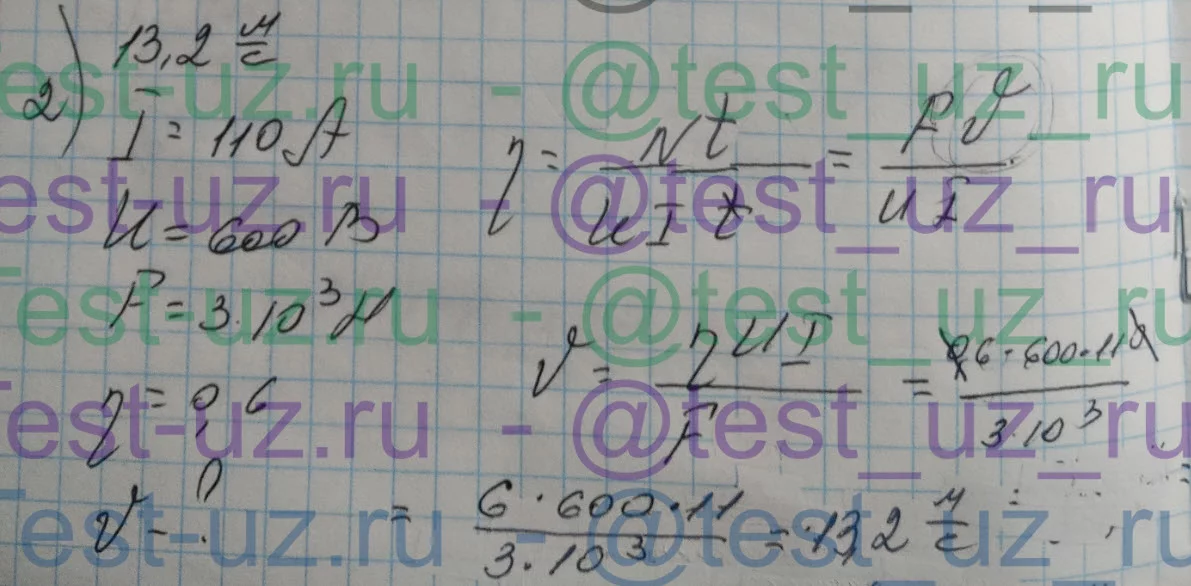 13,2 м/с
2)
I = 110 A
U = 600 В
F = 3·10³ Н
η = 0,6
v - ?
η = Nt / UIt = Fv / UI
v = ηUI / F = 0,6·600·110 / 3·10³
= 6·600·11 / 3·10³ = 13,2 м/с
est-uz.ru - @test_uz_ru
est-uz.ru - @test_uz_ru
est-uz.ru - @test_uz_ru
est-uz.ru - @test_uz_ru
est-uz.ru - @test_uz_ru